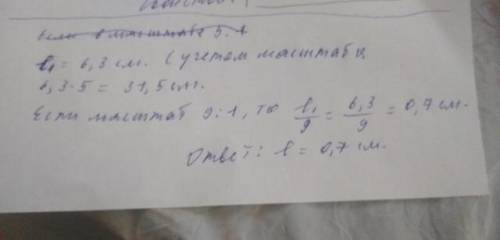 Если в масштабе 5:1
l₁ = 6,3 см. С учетом масштаба
6,3·5 = 31,5 см.
Если масштаб 9:1, то l₁/9 = 6,3/9 = 0,7 см.
Ответ: l = 0,7 см.